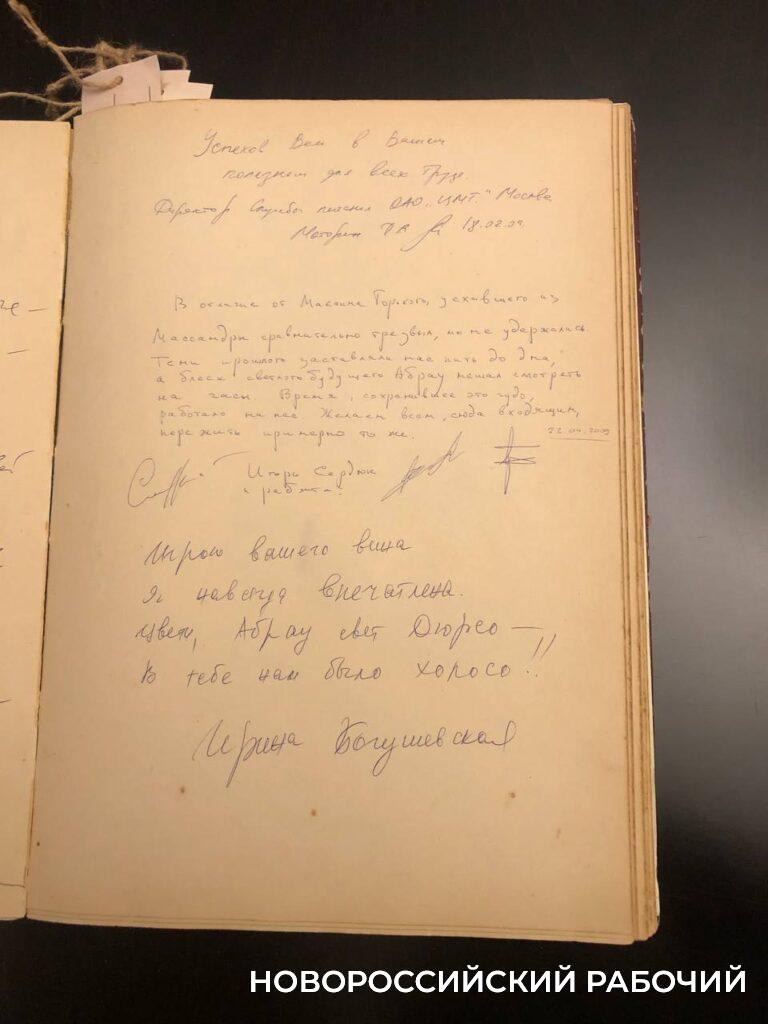 Успехов Вам в Вашем
полезном для всех Труде.
Директор Службы питания ОАО "ЦМТ" Москва
Моторин 18.02.09
В отличие от Максима Горького, уехавшего из
Массандры сравнительно трезвым, мы не удержались.
Тени прошлого заставляли нас пить до дна,
а блеск светлого будущего Абрау мешал смотреть
на часы. Время, сохранившее это чудо,
работало на нас. Желаем всем, сюда входящим,
пережить примерно то же.
22.04.2009
Игорь Сердюк
и ребята.
Игрою вашего вина
Я навсегда впечатлена.
Цвети, Абрау свет Дюрсо —
В тебе нам было хоросо!!
Ирина Богушевская
це —
—
ей
НОВОРОССИЙСКИЙ РАБОЧИЙ